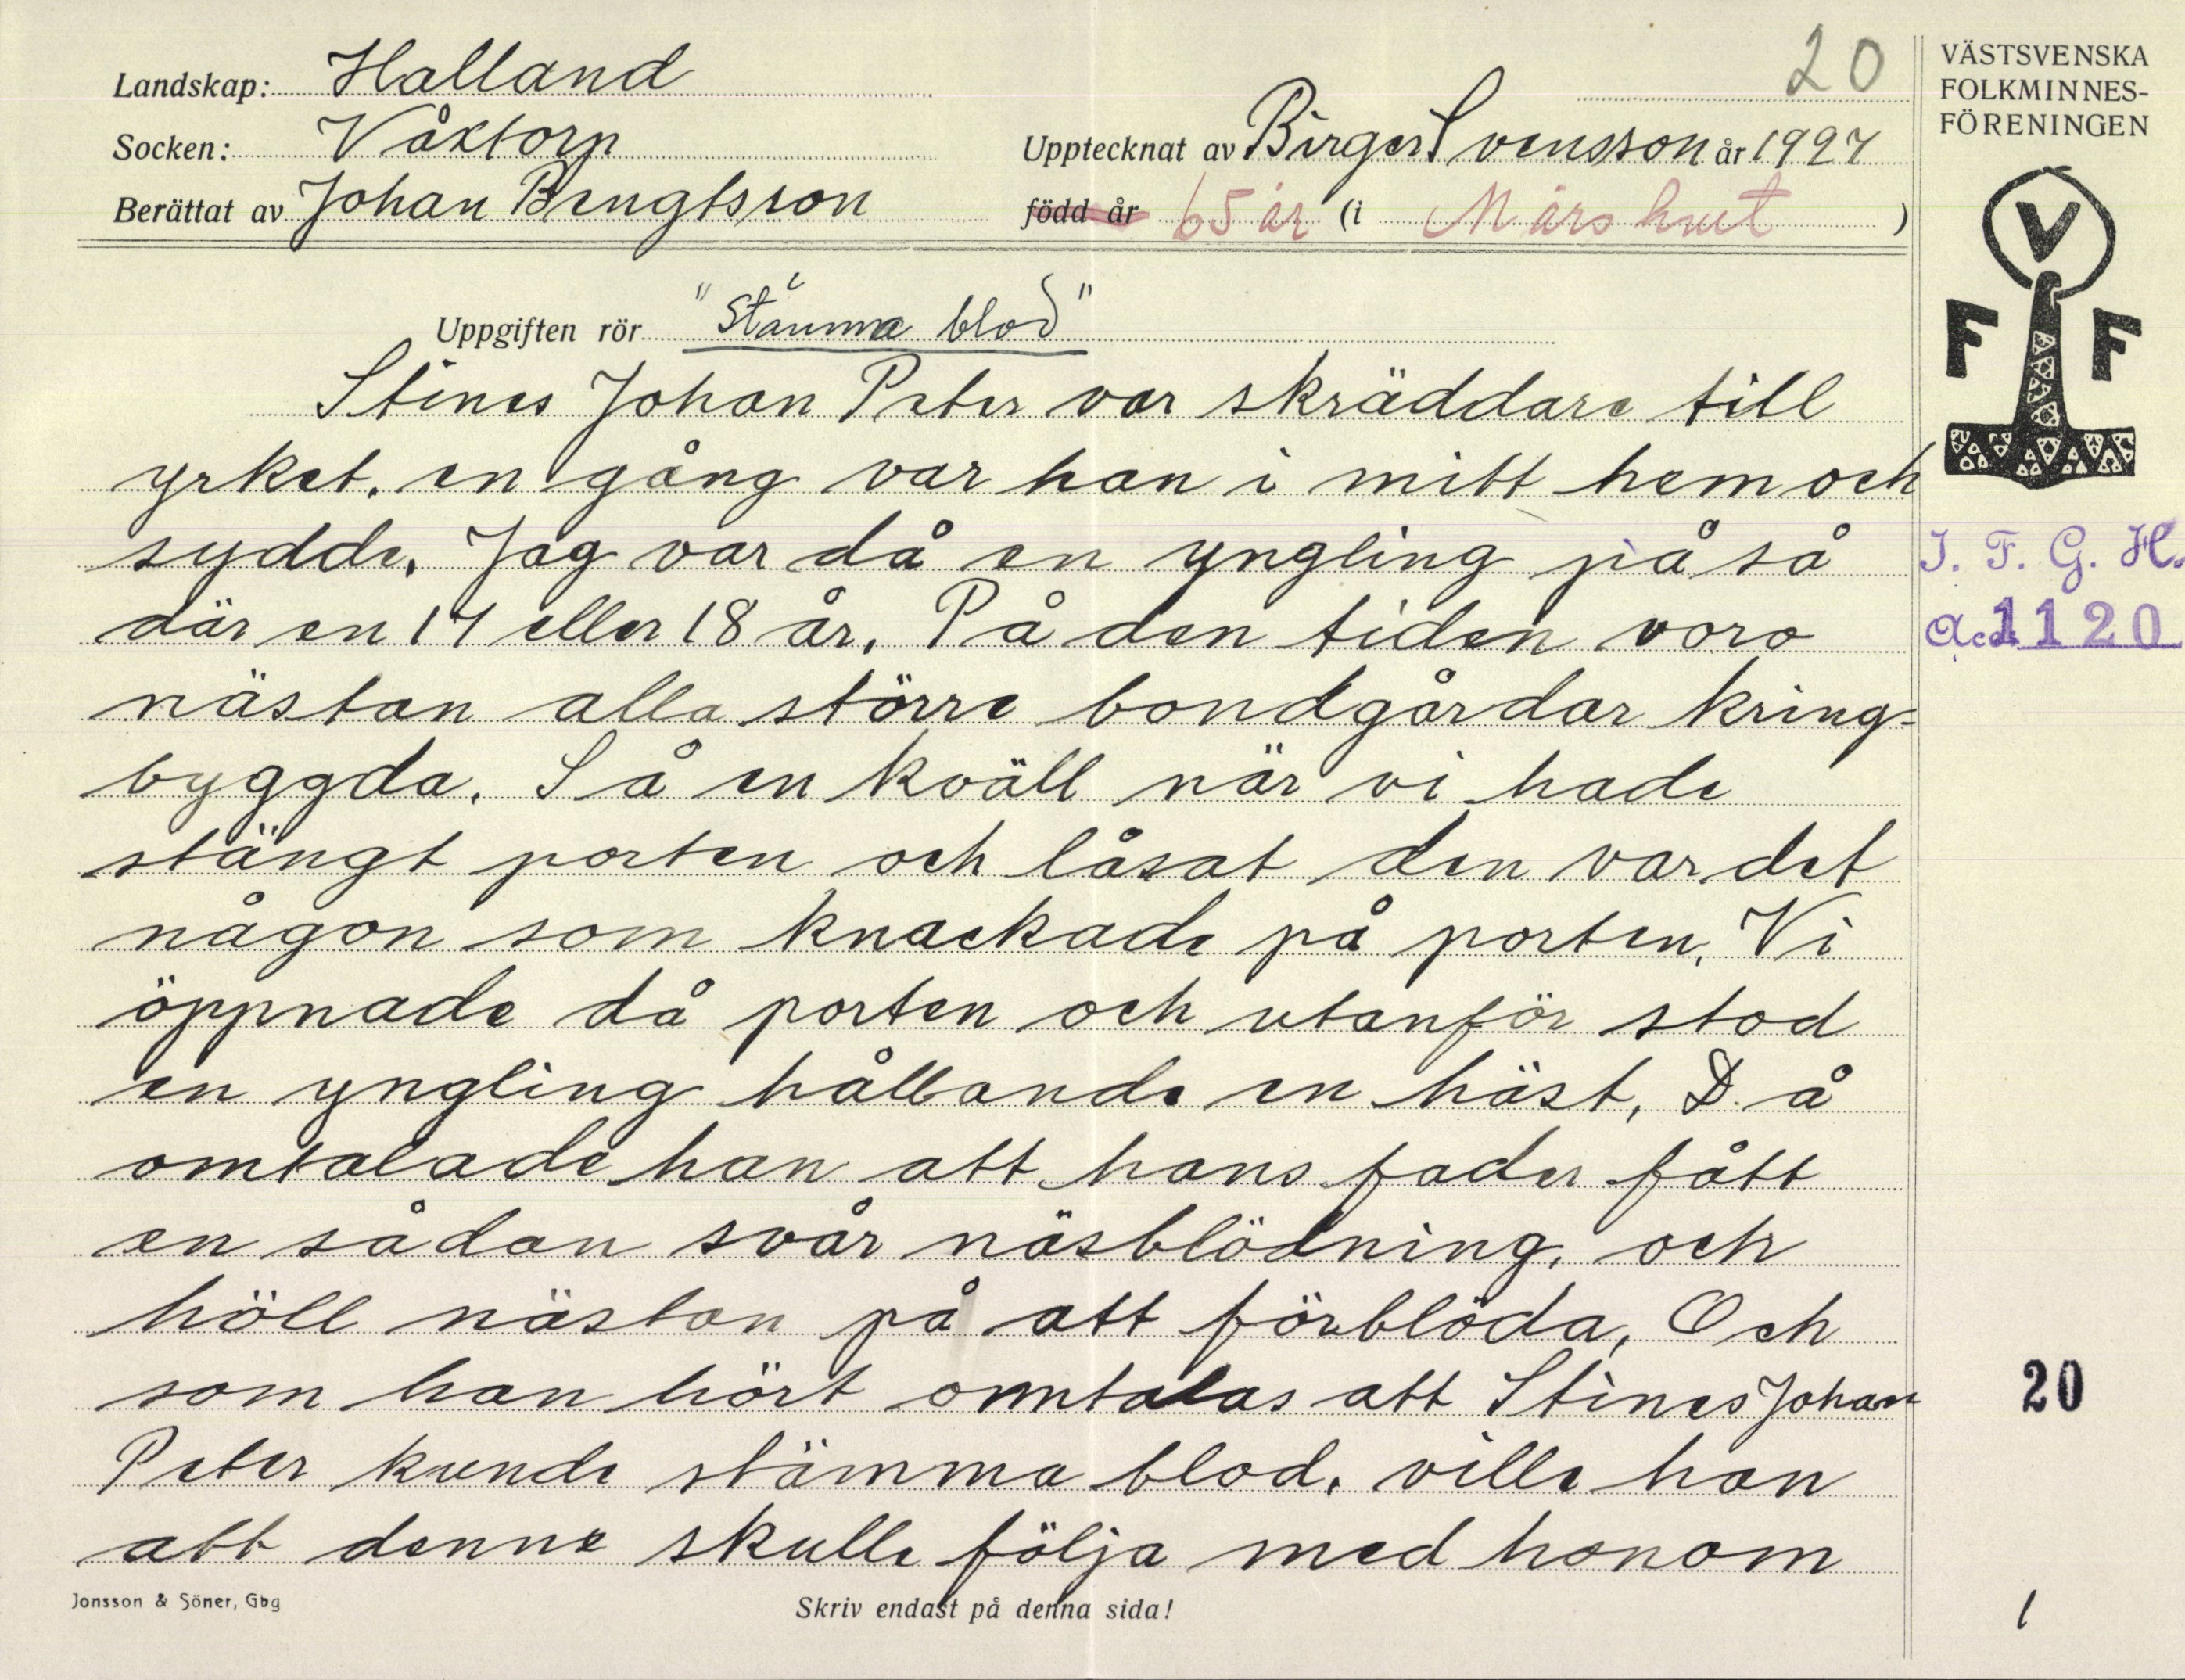 20
Landskap: Halland
Socken: Våxtorp
Upptecknat av Birger Svensson år 1927
Berättat av Johan Bengtsson
född år 65 år (i Mårshult)
Uppgiften rör "Stämma blod"
Stines Johan Peter var skräddare till
yrket. en gång var han i mitt hem och
sydde. Jag var då en yngling på så
där en 17 eller 18 år. På den tiden voro
nästan alla större bondgårdar kring-
byggda. Så en kväll när vi hade
stängt porten och låsat den var det
någon som knackade på porten. Vi
öppnade då porten och utanför stod
en yngling hållande en häst. Då
omtalade han att hans fader fått
en sådan svår näsblödning, och
höll nästan på att förblöda. Och
som han hört omtalas att Stines Johan
Peter kunde stämma blod. ville han
att denne skulle följa med honom
Jonsson & Söner, Gbg
Skriv endast på denna sida!
VÄSTSVENSKA
FOLKMINNES-
FÖRENINGEN
V
F F
I. F. G. H.
Acc. 1120
20
1